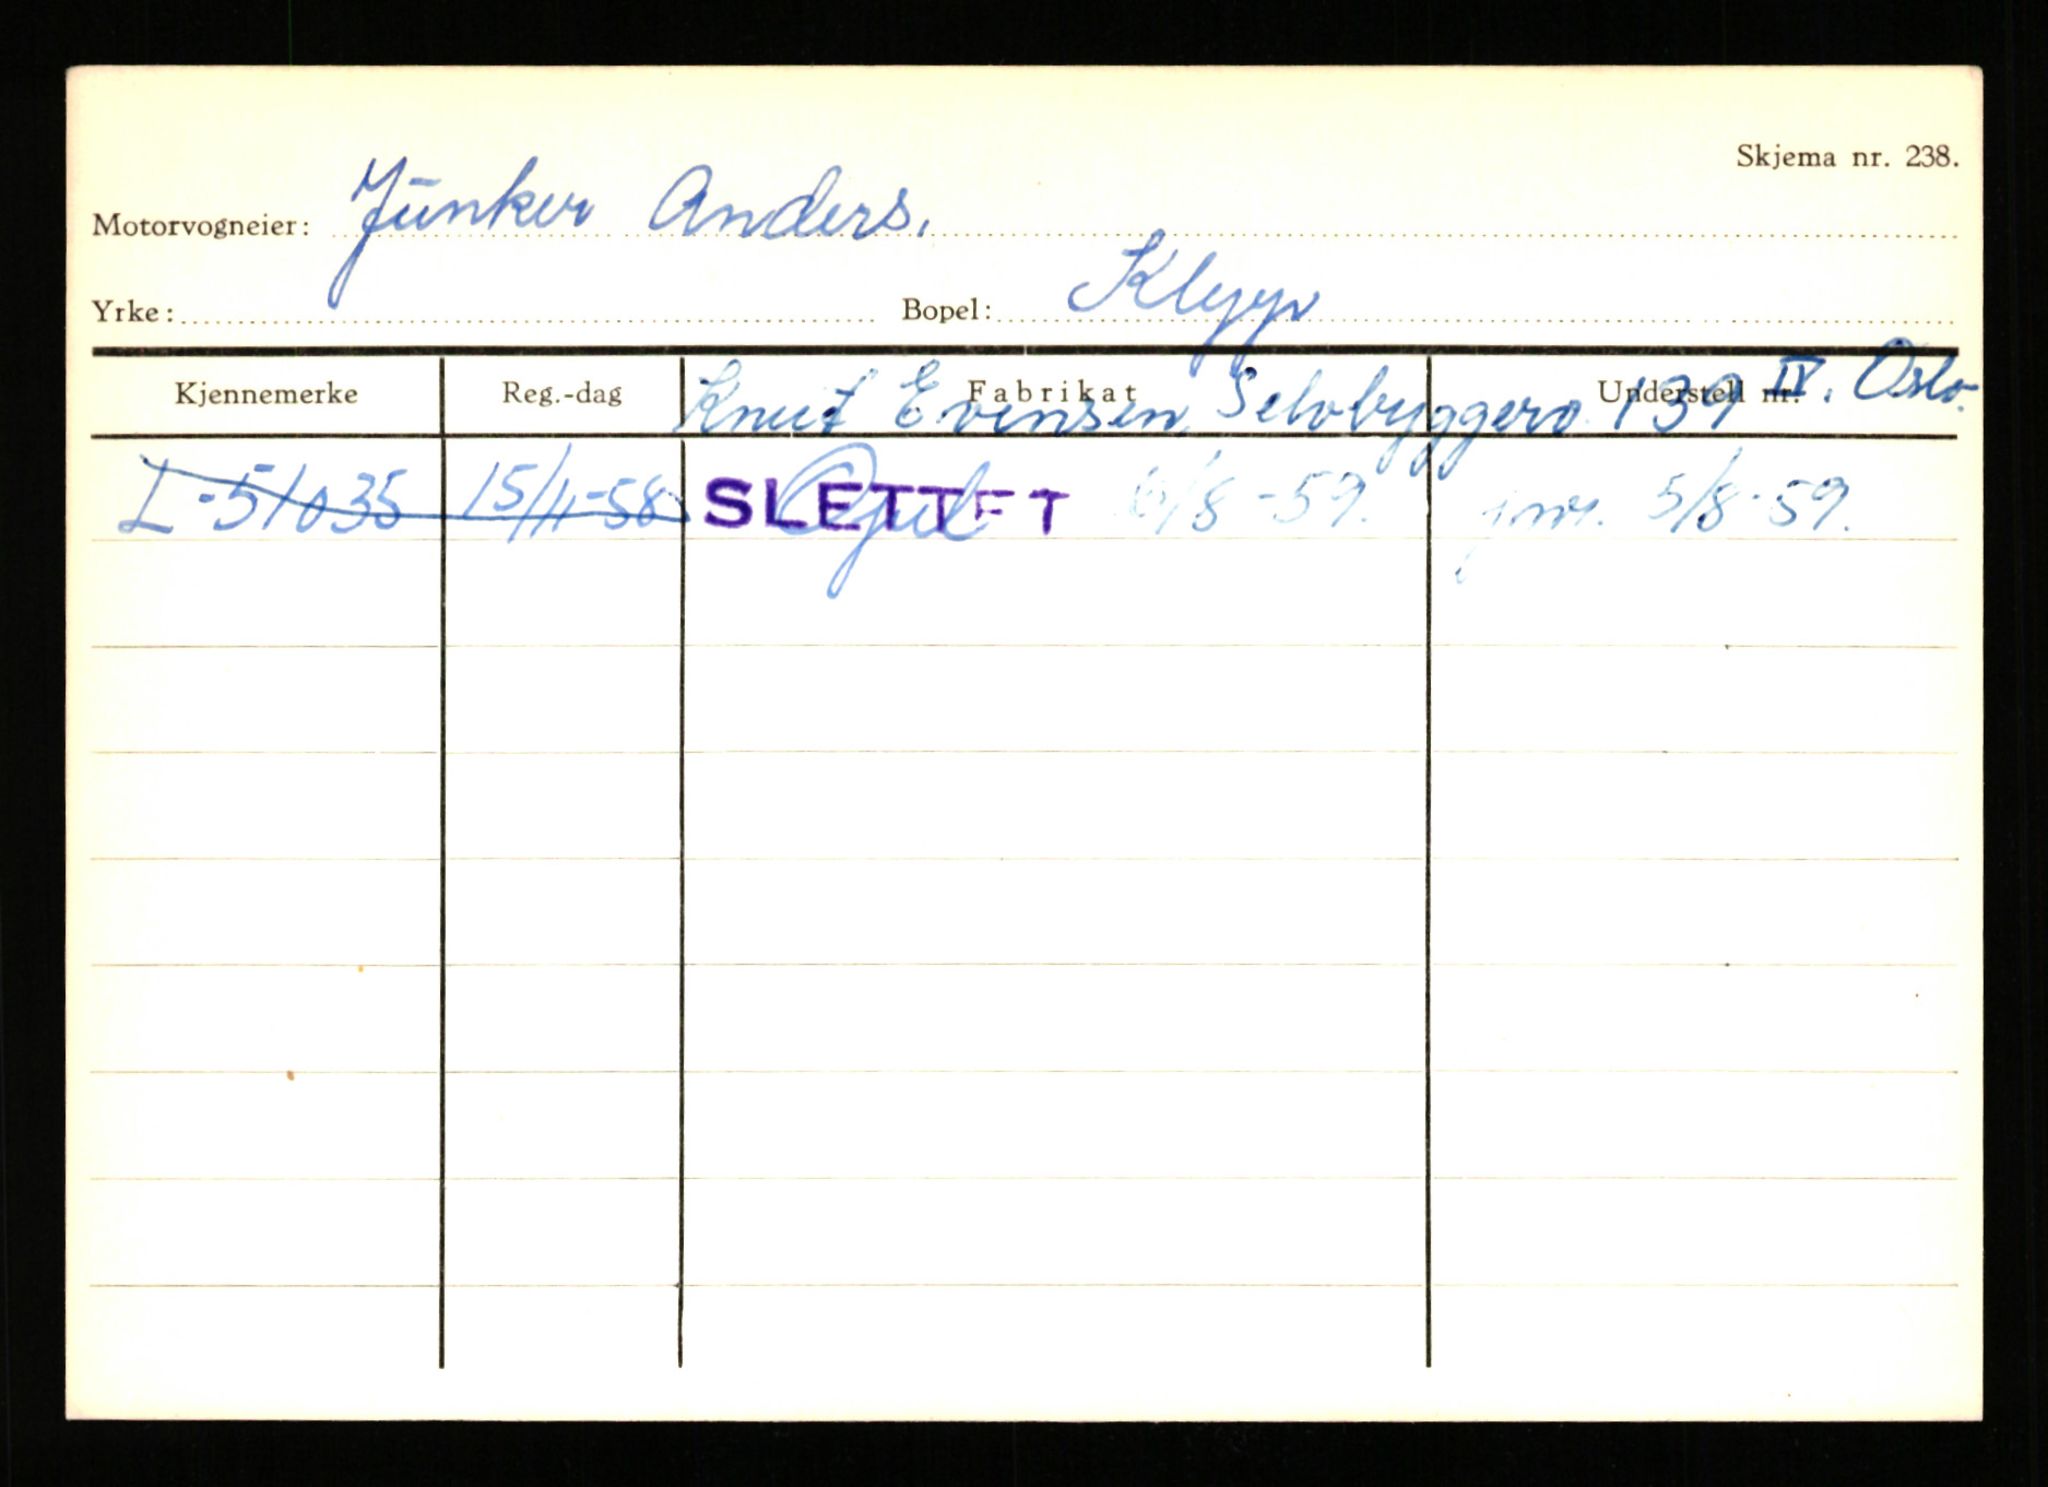 Skjema nr. 238.
Motorvogneier: Junker Anders.
Yrke: Bopel: Klepp
Kjennemerke Reg.-dag Fabrikat Understell nr.
Knut Evensen, Selvbyggerv. 139 IV. Oslo.
L-51035 15/11-58 Opel SLETTET 6/8-59. 5/8-59.